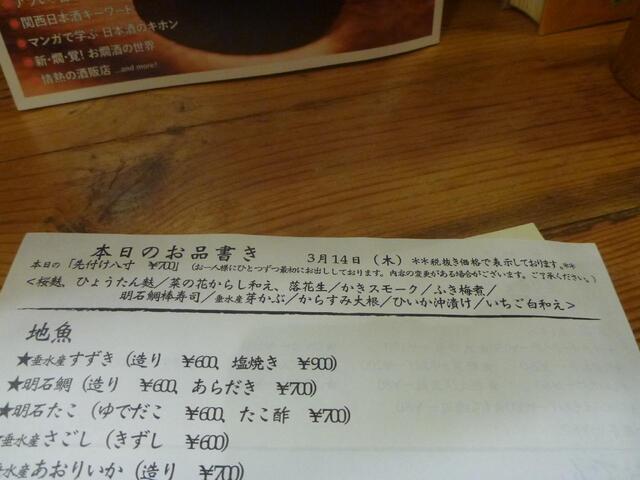 関西日本酒キーワード
マンガで学ぶ 日本酒のキホン
新・燗・覚! お燗酒の世界
情熱の酒販店 ...and more!
本日のお品書き 3月14日(木) **税抜き価格で表示しております。**
本日の「先付け八寸 ¥700」(お一人様にひとつずつ最初にお出ししております。内容の変更がある場合がございます。ご了承ください。)
<桜麩、ひょうたん麩/菜の花からし和え、落花生/かきスモーク/ふき梅煮/
明石鯛棒寿司/垂水産芽かぶ/からすみ大根/ひいか沖漬け/いちご白和え>
地魚
★垂水産すずき(造り ¥600、塩焼き ¥900)
★明石鯛(造り ¥600、あらだき ¥700)
★明石たこ(ゆでだこ ¥600、たこ酢 ¥700)
垂水産さごし(きずし ¥600)
垂水産あおりいか(造り ¥700)